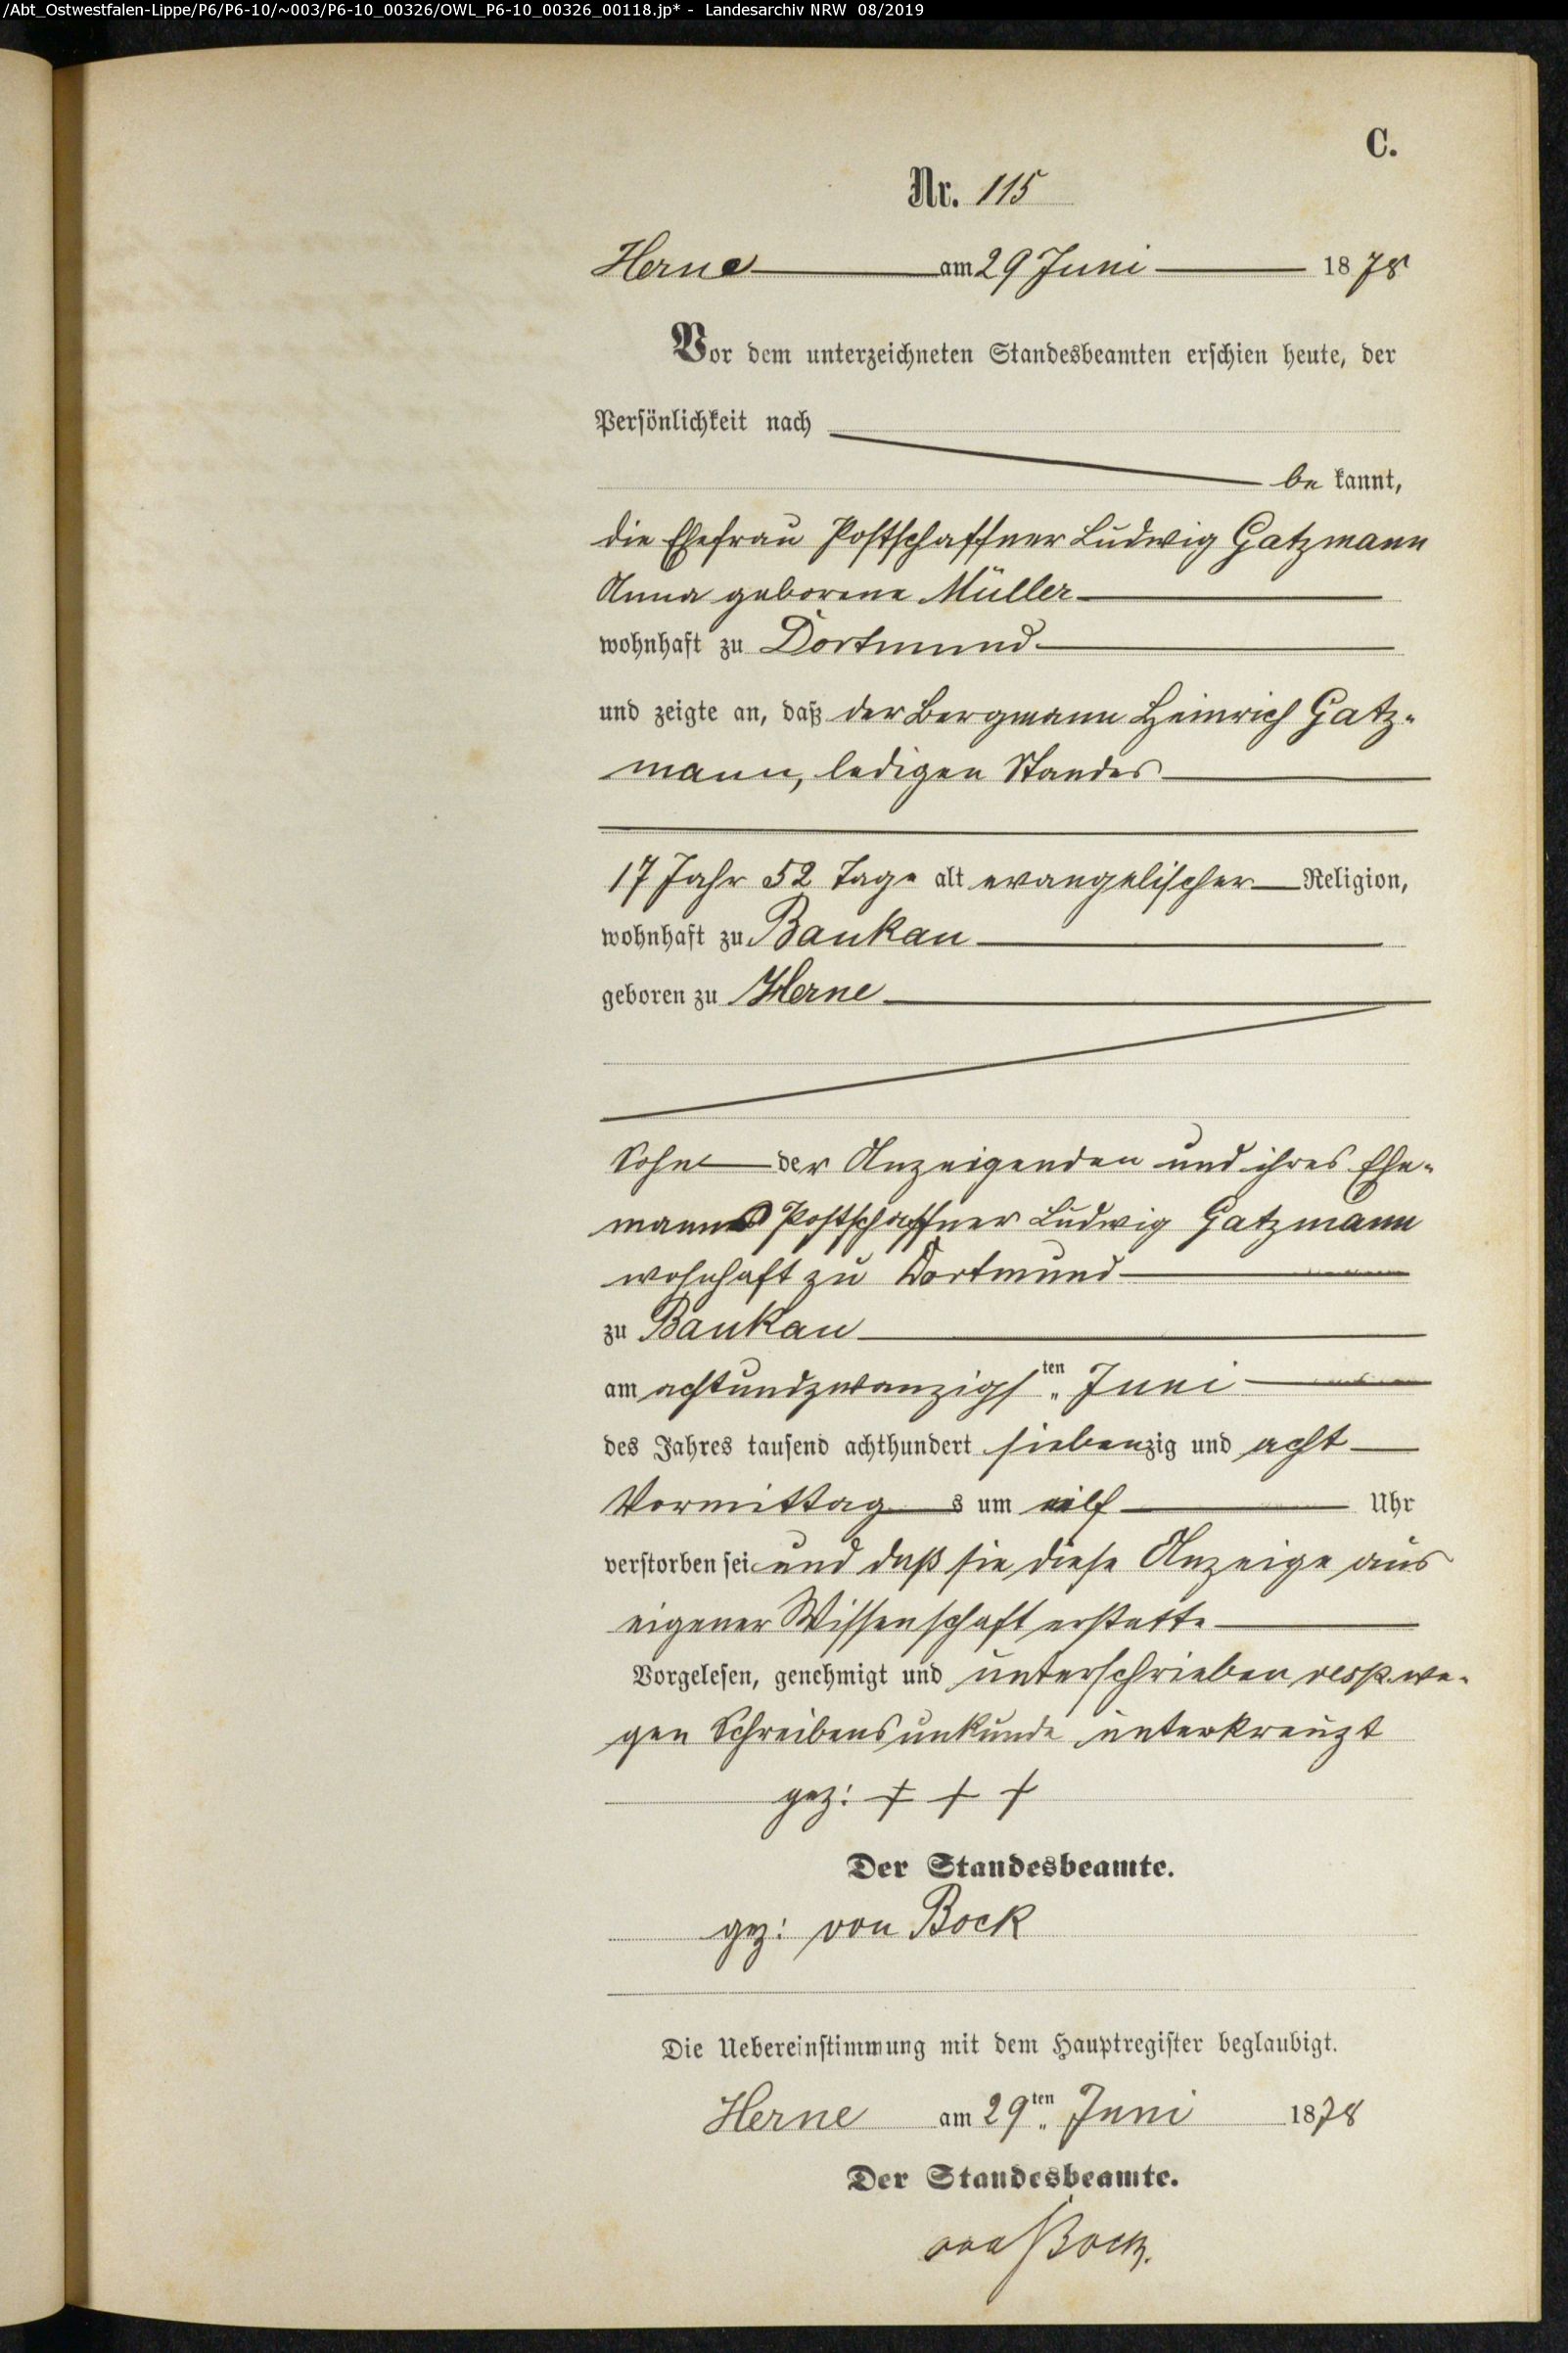 /Abt_Ostwestfalen-Lippe/P6/P6-10/~003/P6-10_00326/OWL_P6-10_00326_00118.jp* - Landesarchiv NRW 08/2019
C.
Nr. 115
Herne am 29 Juni 1878
Vor dem unterzeichneten Standesbeamten erschien heute, der
Persönlichkeit nach
be kannt,
die Ehefrau Postschaffner Ludwig Gatzmann
Anna geborene Müller
wohnhaft zu Dortmund
und zeigte an, daß der Bergmann Heinrich Gatz-
mann, ledigen Standes
17 Jahr 52 Tage alt evangelischer Religion,
wohnhaft zu Baukau
geboren zu Herne
Sohn der Anzeigenden und ihres Ehe-
mannes Postschaffner Ludwig Gatzmann
wohnhaft zu Dortmund
zu Baukau
am achtundzwanzigsten Juni
des Jahres tausend achthundert siebenzig und acht
Vormittags um eilf Uhr
verstorben sei und daß sie diese Anzeige aus
eigener Wissenschaft erstatte
Vorgelesen, genehmigt und unterschrieben resp. we-
gen Schreibensunkunde unterkreuzt
gez: + + +
Der Standesbeamte.
gez: von Bock
Die Uebereinstimmung mit dem Hauptregister beglaubigt.
Herne am 29ten Juni 1878
Der Standesbeamte.
von Bock.